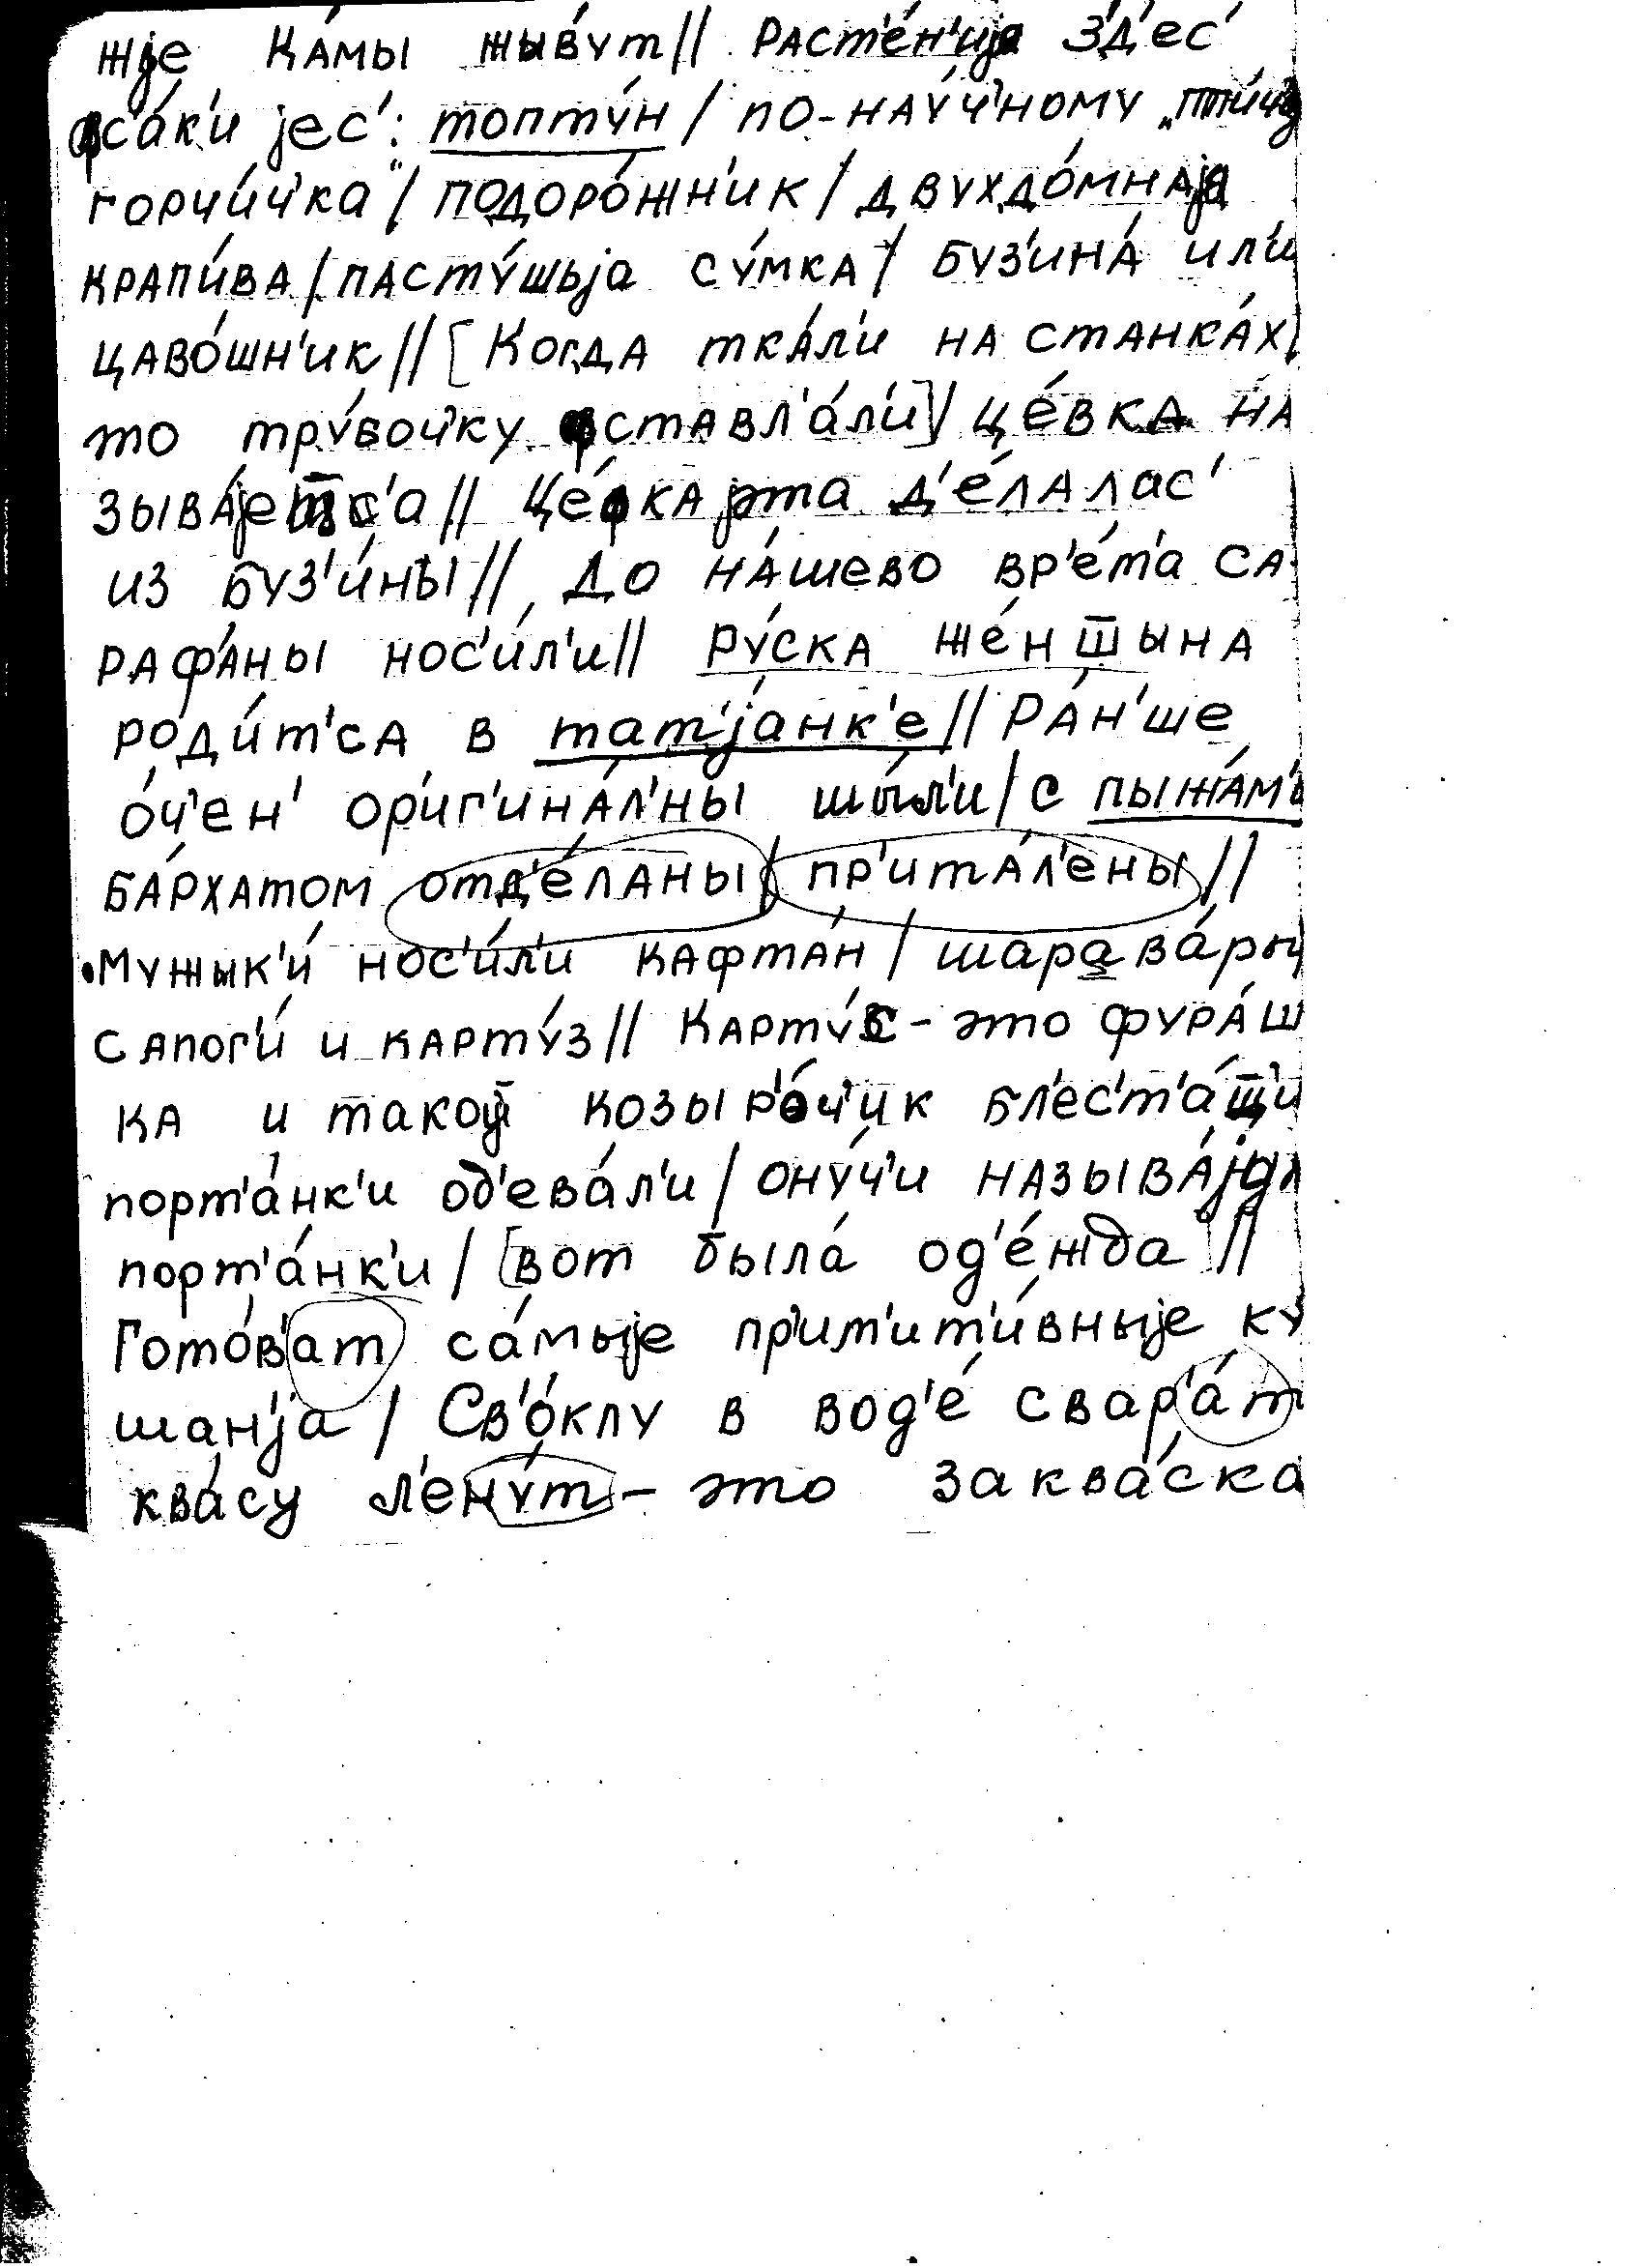 жје Ка́мы жыву́т// Раст'е́н'ија З'д'ес'
фс'а́к'и јес': топту́н / по-нау́ч'ному „пти́ч'ја
горчи́ч'ка"/ подоро́жн'ик / двухдо́мнаја
крапи́ва / пасту́шьја су́мка / буз'ина́ ил'и
цаво́шн'ик// [Когда тка́л'и на станка́х/
то тру́воч'ку фставл'а́л'и]/ це́вка на
зыва́јетс'а// Це́фка јэта д'е́лалас'
из буз'и́ны// До на́шево вр'е́м'а са
рафа́ны нос'и́л'и// Ру́ска же́нт̅ына
роди́т'са в тат'ја́нк'е// Ра́н'ше
о́ч'ен' ор'иг'ина́л'ны шы́л'и / с пыжа́м'и
ба́рхатом отд'е́ланы / пр'ита́л'ены //
Мужык'и́ нос'и́л'и кафта́н / шарава́ры
сапог'и́ и карту́з// Карту́с - это фура́ш
ка и такой козыр'о́ч'ик бл'ес'т'а́щ'и
порт'а́нк'и од'ева́л'и / ону́ч'и называ́јул
порт'а́нк'и / [вот была́ од'е́жда //
Гото́в'ат са́мыје пр'им'ит'и́вныје ку
шан'ја / Св'о́клу в вод'е́ свар'а́т
ква́су л'ену́т - это заква́ска